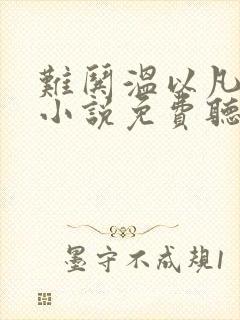 難鬨溫以凡
小說免費聽
墨守不成規1